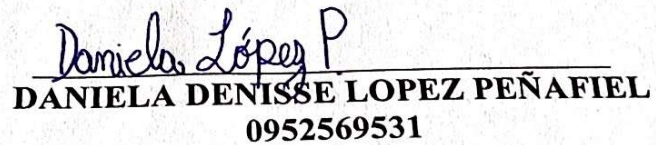 Daniela López P.
DANIELA DENISSE LOPEZ PEÑAFIEL
0952569531